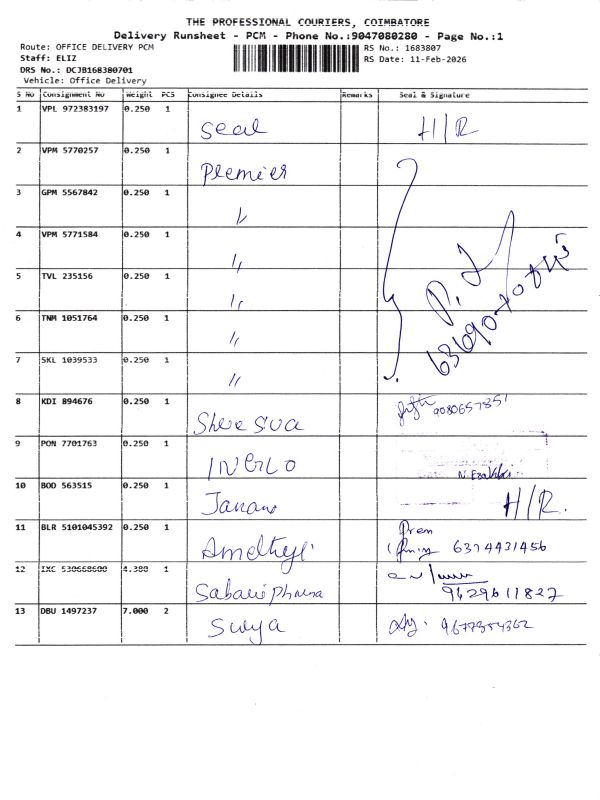 THE PROFESSIONAL COURIERS, COIMBATORE
Delivery Runsheet - PCM - Phone No.:9047080280 - Page No.:1
Route: OFFICE DELIVERY PCM
Staff: ELIZ
DRS No.: DCJB168380701
Vehicle: Office Delivery
RS No.: 1683807
RS Date: 11-Feb-2026
S No Consignment No Weight PCS Consignee Details Remarks Seal & Signature
1 VPL 972383197 0.250 1 Seal H/R
2 VPM 5770257 0.250 1 Premier
3 GPM 5567842 0.250 1 〃
4 VPM 5771584 0.250 1 〃
5 TVL 235156 0.250 1 〃
6 TNM 1051764 0.250 1 〃
7 SKL 1039533 0.250 1 〃
8 KDI 894676 0.250 1 Shree Siva 9080657851
9 PON 7701763 0.250 1
10 BOD 563515 0.250 1 H/R.
11 BLR 5101045392 0.250 1 Prem 6374431456
12 IXC 530668600 4.380 1 9629611827
13 DBU 1497237 7.000 2 Surya 9677354362